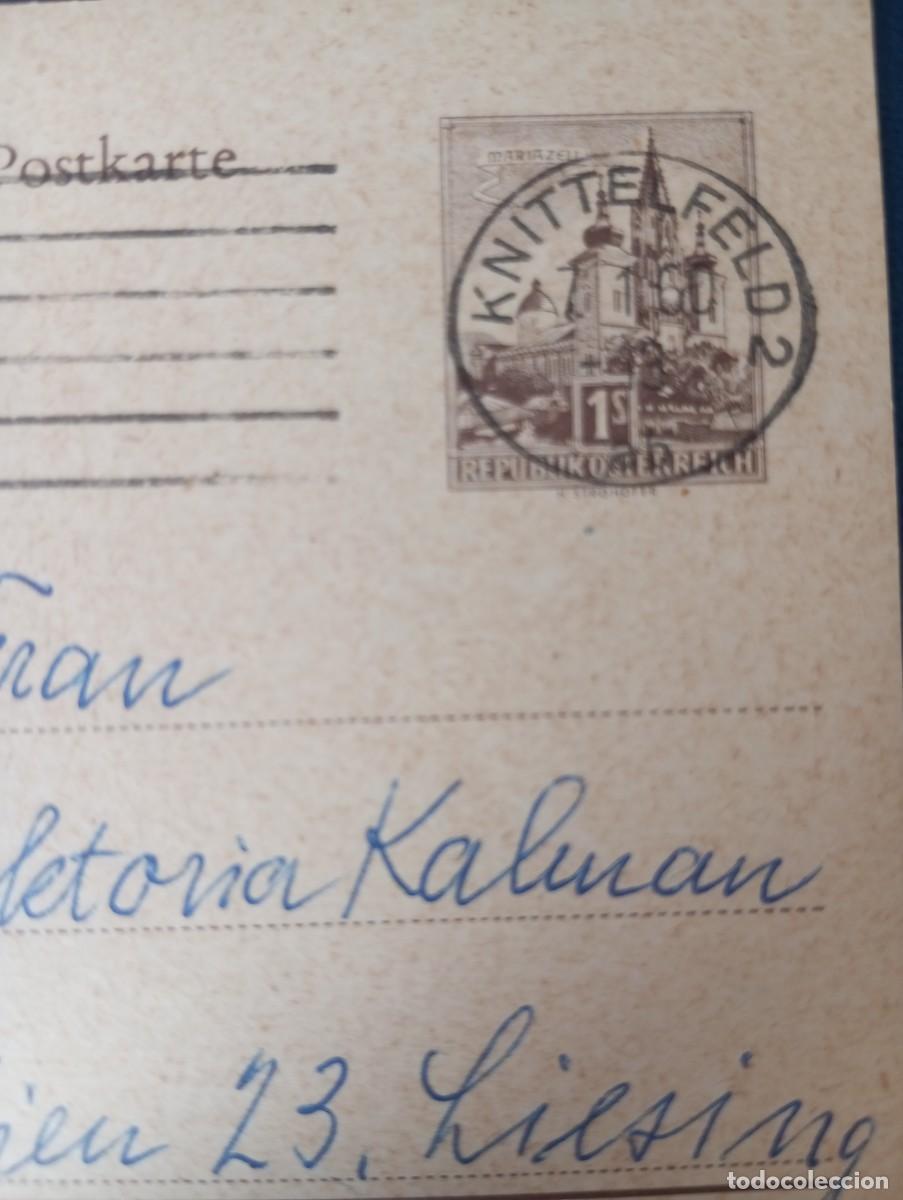 Postkarte
MARIAZELL
KNITTELFELD 2
1S
REPUBLIK ÖSTERREICH
Frau
ktoria Kalman
ien 23, Liesing
todocoleccion